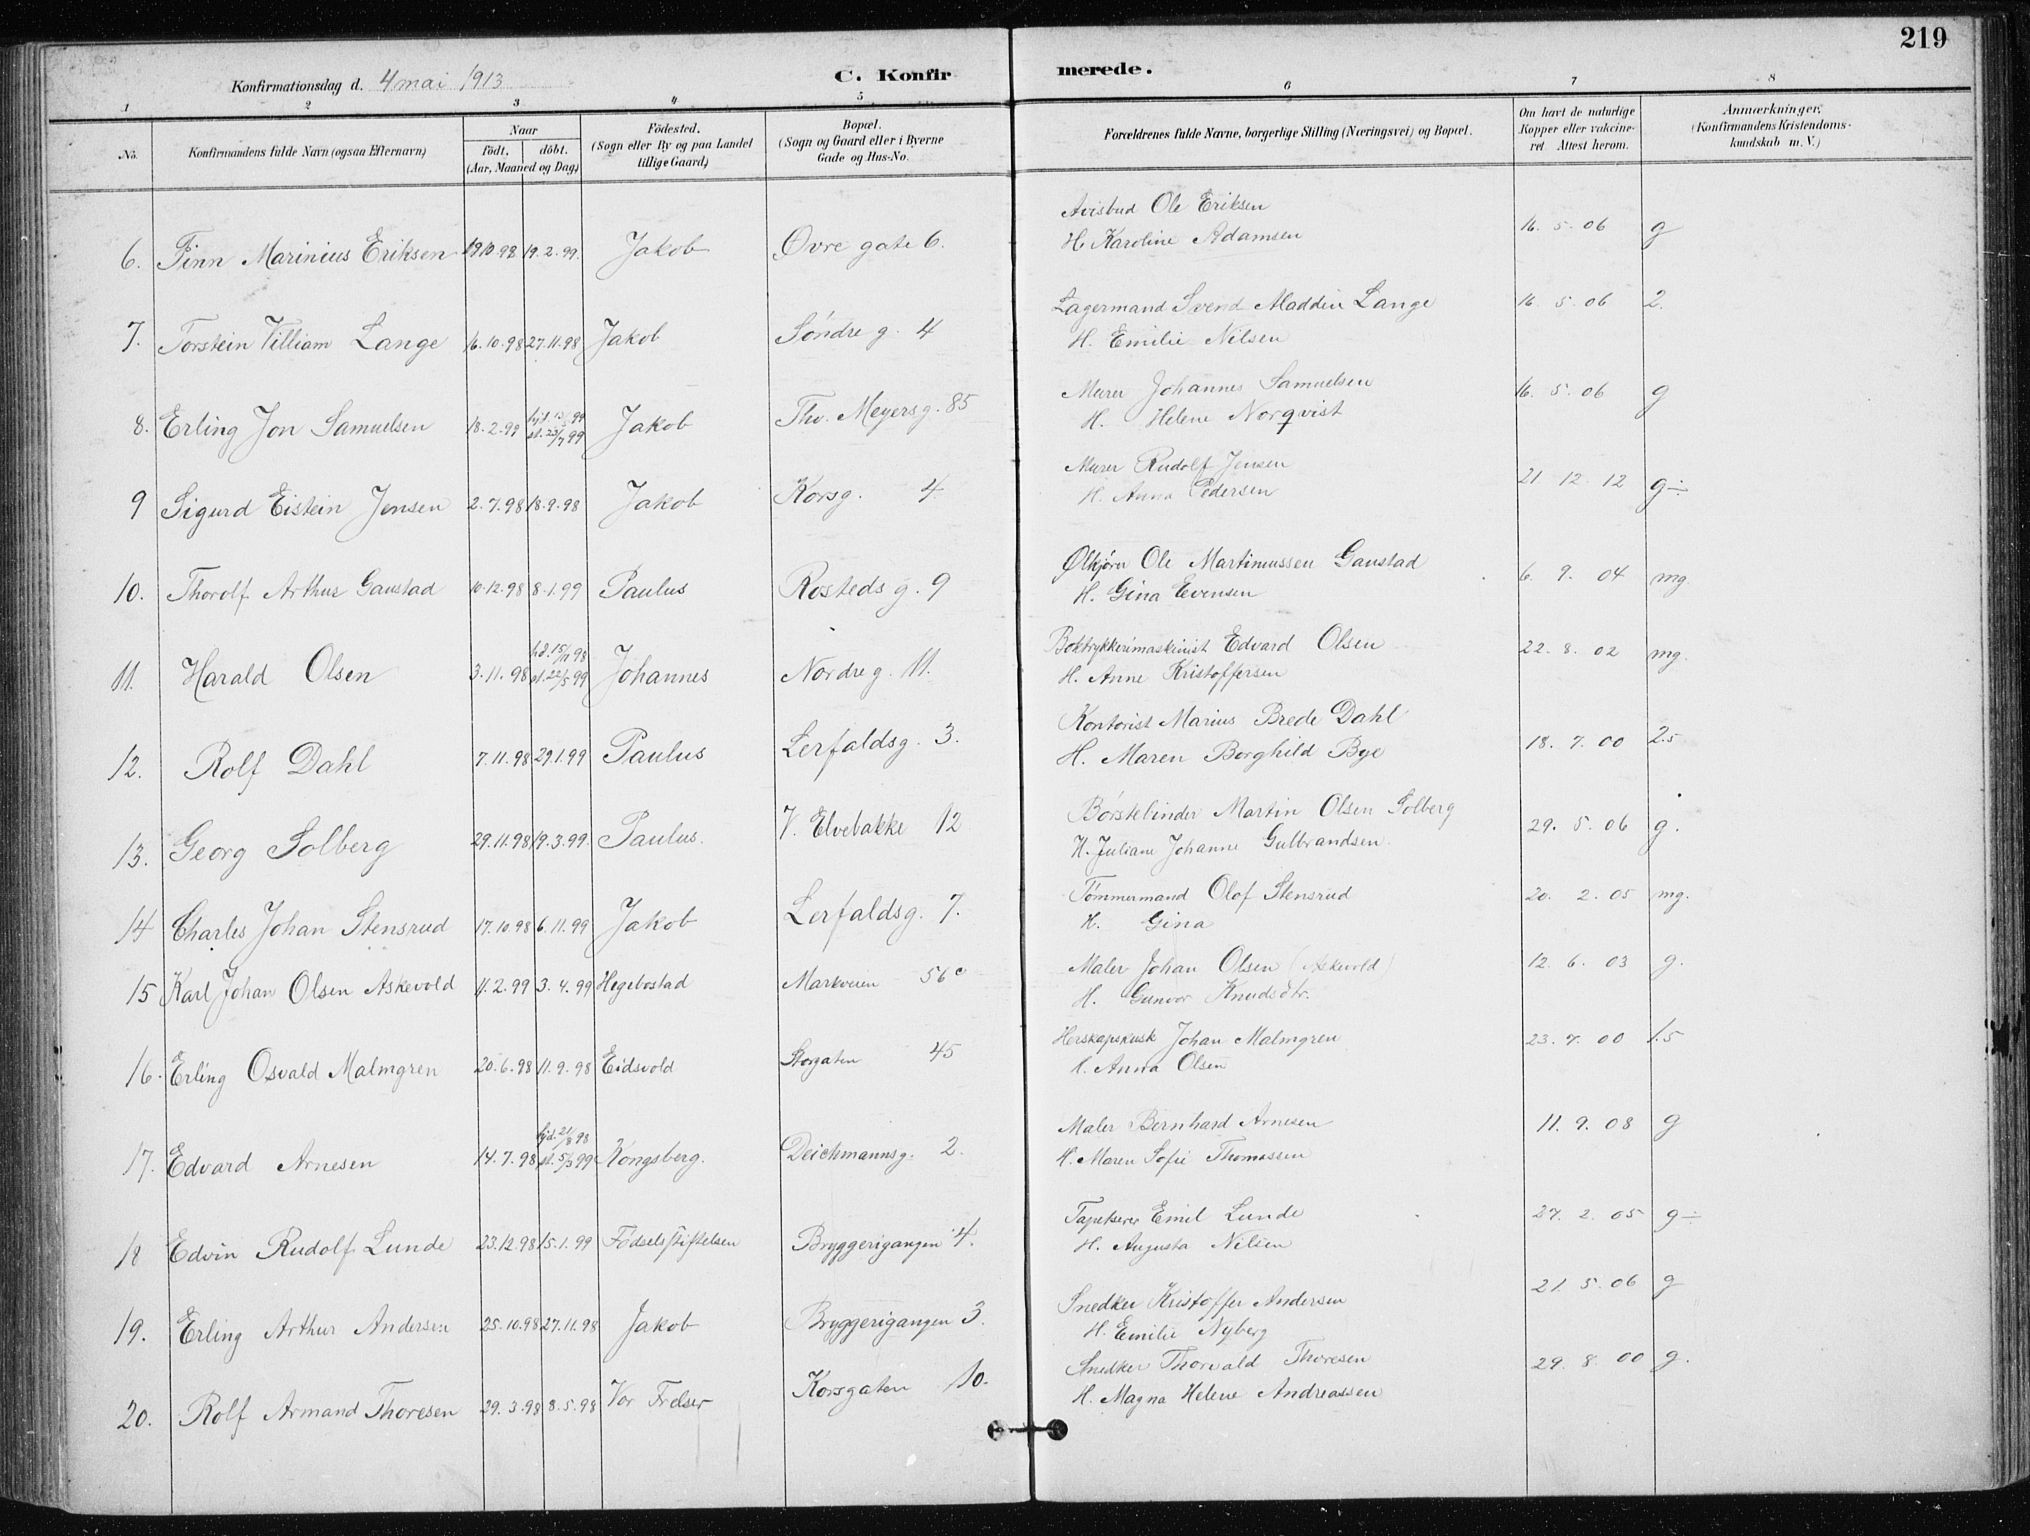 219
Konfirmationsdag d. 4 mai 1913
C. Konfirmerede.
1 2 3 4 5 6 7 8
No. Konfirmandens fulde Navn (ogsaa Efternavn) Naar födt, döbt. (Aar, Maaned og Dag) Födested. (Sogn eller By og paa Landet tillige Gaard) Bopæl. (Sogn og Gaard eller i Byerne Gade og Hus-No. Forældrenes fulde Navne, borgerlige Stilling (Næringsvei) og Bopæl. Om havt de naturlige Kopper eller vakcineret. Attest herom. Anmærkninger, (Konfirmandens Kristendomskundskab m. V.)
6. Finn Marinius Eriksen 19.10.98 19.2.99. Jakob Øvre gate 6. Avisbud Ole Eriksen 16. 5. 06 g
H. Karoline Adamsen
7. Torstein Villiam Lange 16.10.98 27.11.98 Jakob Söndre g. 4 Lagermand Svend Maddin Lange 16. 5. 06 2.
H. Emilie Nilsen
8. Erling Jon Samuelsen 18.2.99 st. 23/7 99 Jakob Thv. Meyersg. 85 Murer Johannes Samuelsen 16. 5. 06 g
H. Helene Norqvist
9 Sigurd Eistein Jensen 2.7.98 18.9.98 Jakob Korsg. 4 Murer Rudolf Jensen 21 12 12 g÷
H. Anna Pedersen
10. Thorolf Arthur Gaustad 10.12.98 8.1.99 Paulus Rosteds g. 9 Ølkjörer Ole Martinussen Gaustad 6. 9. 04 mg.
H. Gina Evensen
11. Harald Olsen 3.11.98 hd. 15/11 98 st. 22/5 99 Johannes Nordre g. 11. Boktrykkerimaskinist Edvard Olsen 22. 8. 02 mg.
H. Anne Kristoffersen
12. Rolf Dahl 7.11.98 29.1.99 Paulus Lerfaldsg. 3. Kontorist Marius Brede Dahl 18. 7. 00 2.5
H. Maren Borghild Bye
13. Georg Solberg 29.11.98 19.3.99. Paulus. V. Elvebakke 12 Börstebinder Martin Olsen Solberg 29. 5. 06 g.
H. Juliane Johanne Gulbrandsen.
14 Charles Johan Stensrud 17.10.98 6.11.99 Jakob Lerfaldsg. 7. Tömmermand Olof Stensrud 20. 2. 05 mg.
H. Gina
15 Karl Johan Olsen Askevold 11.2.99 3.4.99 Hegebostad Markveien 56 c Maler Johan Olsen (Askevold) 12. 6. 03 g.
H. Gunvor Knudsdtr.
16. Erling Osvald Malmgren 20.6.98 11.9.98 Eidsvold Storgaten 45 Herskapskusk Johan Malmgren 23. 7. 00 1.5
H. Anna Olsen
17. Edvard Arnesen 14.7.98 hjd. 21/8 98 st. 5/3 99 Kongsberg. Deichmannsg. 2. Maler Bernhard Arnesen 11. 9. 08 g
H. Maren Sofie Thomassen
18 Edvin Rudolf Lunde 23.12.98 15.1.99 Födselsstiftelsen Bryggerigangen 4. Tapetserer Emil Lunde 27. 2. 05 g÷
H. Augusta Nilsen
19. Erling Arthur Andersen 25.10.98 27.11.98 Jakob Bryggerigangen 3. Snedker Kristoffer Andersen 21. 5. 06 g
H. Emilie Nyberg
20. Rolf Armand Thoresen 29.3.98 8.5.98 Vor Frelser Korsgaten 10. Snedker Thorvald Thoresen 29. 8. 00 g.
H. Magna Helene Andreassen